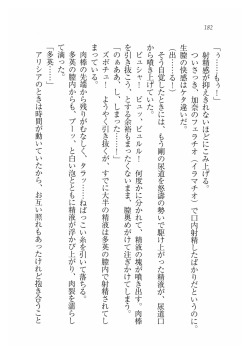 182
「う……もぅー」
射精感が抑えきれないほどにこみ上げる。
ついさっき、加奈のフェラチオ(イラマチオ)で口内射精したばかりだというのに。
生膣の快感はケタ違いだ。
(出……る!)
そう自覚したときには、もう剛の尿道を怒濤の勢いで駆け上がった精液が、尿道口
から噴き上げていた。
ビュシャー、ビュッ、ビュルルー! 何度かに分かれて、精液の塊が噴き出す。肉棒
を引き抜こう、とする余裕もまったくないまま、膣奥めがけて注ぎかけてしまう。
(のぁああ、し、しまった……!)
ズボチュ! ようやく引き抜くが、すでに大半の精液は多英の膣内で射精してし
まっている。
肉棒の先端から残りがなさけなく、タラッ……ねばっこい糸を引いて落ちる。
多英の膣内からも、ブーッ、と白い泡とともに精液が浮かび上がり、肉裂を濡らし
て滴った。
「多英……」
アリシアのときは時間が動いていたから、お互い照れもあったけれど抱き合うこと